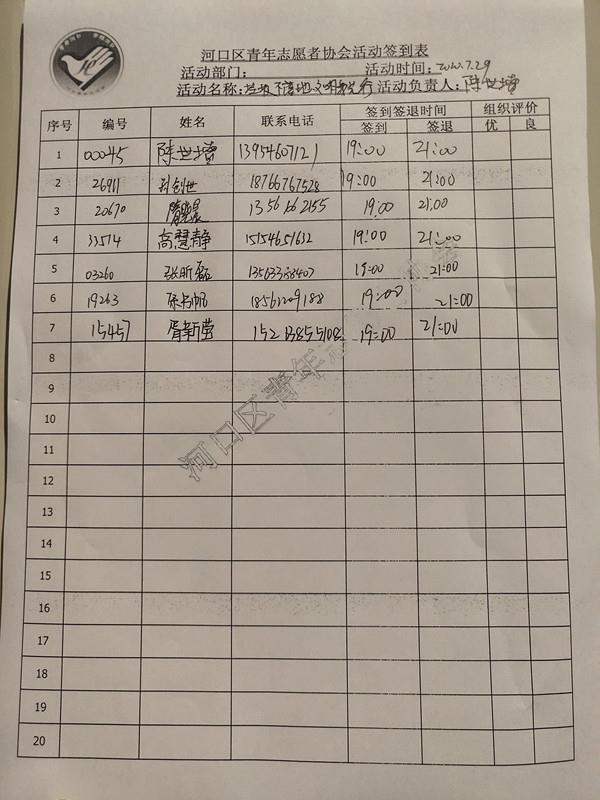 河口区青年志愿者协会活动签到表
活动部门: 活动时间: 2020.7.29
活动名称: 垃圾不落地文明 行 活动负责人: 陈世增
序号 编号 姓名 联系电话 签到签退时间 组织评价
签到 签退 优 良
1 00045 陈世增 13954607121 19:00 21:00
2 26911 创世 18766767528 19:00 21:00
3 20670 19:00 21:00
4 33514 高慧静 15154651632 19:00 21:00
5 03260 张昕磊 19:00 21:00
6 19263 18561209188 19:00 21:00
7 15457 胥新莹 15213855108 19:00 21:00
8
9
10
11
12
13
14
15
16
17
18
19
20
河口区青年志愿者协会